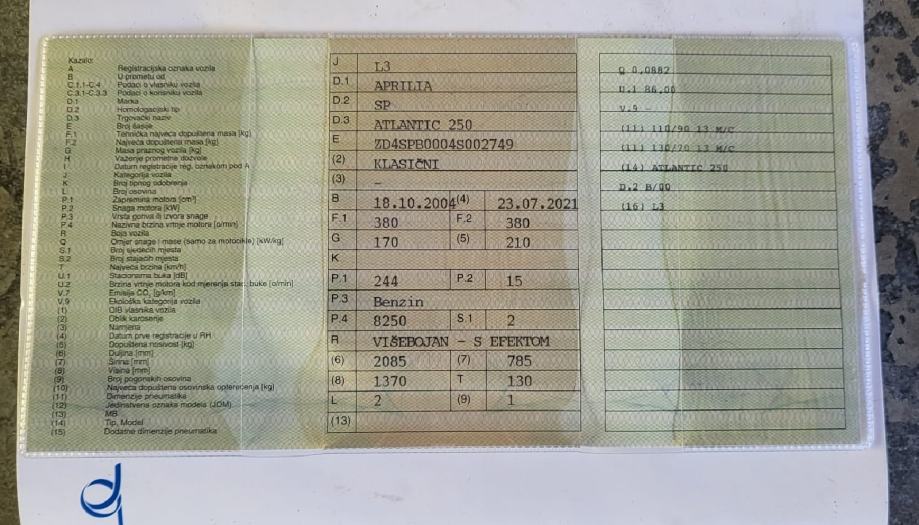 Kazalo:
A Registracijska oznaka vozila
B U prometu od
C.1.1-C.4 Podaci o vlasniku vozila
C.3.1-C.3.3 Podaci o korisniku vozila
D.1 Marka
D.2 Homologacijski tip
D.3 Trgovački naziv
E Broj šasije
F.1 Tehnička najveća dopuštena masa [kg]
F.2 Najveća dopuštena masa [kg]
G Masa praznog vozila [kg]
H Važenje prometne dozvole
I Datum registracije reg. oznakom pod A
J Kategorija vozila
K Broj tipnog odobrenja
L Broj osovina
P.1 Zapremina motora [cm³]
P.2 Snaga motora [kW]
P.3 Vrsta goriva ili izvora snage
P.4 Nazivna brzina vrtnje motora [o/min]
R Boja vozila
Q Omjer snage i mase (samo za motocikle) [kW/kg]
S.1 Broj sjedećih mjesta
S.2 Broj stajaćih mjesta
T Najveća brzina [km/h]
U.1 Stacionarna buka [dB]
U.2 Brzina vrtnje motora kod mjerenja stac. buke [o/min]
V.7 Emisija CO₂ [g/km]
V.9 Ekološka kategorija vozila
(1) OIB vlasnika vozila
(2) Oblik karoserije
(3) Namjena
(4) Datum prve registracije u RH
(5) Dopuštena nosivost [kg]
(6) Duljina [mm]
(7) Širina [mm]
(8) Visina [mm]
(9) Broj pogonskih osovina
(10) Najveća dopuštena osovinska opterećenja [kg]
(11) Dimenzije pneumatika
(12) Jedinstvena oznaka modela (JOM)
(13) MB
(14) Tip, Model
(15) Dodatne dimenzije pneumatika
J L3
D.1 APRILIA
D.2 SP
D.3 ATLANTIC 250
E ZD4SPB0004S002749
(2) KLASIČNI
(3) –
B 18.10.2004 (4) 23.07.2021
F.1 380 F.2 380
G 170 (5) 210
K
P.1 244 P.2 15
P.3 Benzin
P.4 8250 S.1 2
R VIŠEBOJAN - S EFEKTOM
(6) 2085 (7) 785
(8) 1370 T 130
L 2 (9) 1
(13)
Q 0,0882
U.1 86,00
V.9 -
(11) 110/90 13 M/C
(11) 130/70 13 M/C
(14) ATLANTIC 250
D.2 B/00
(16) L3